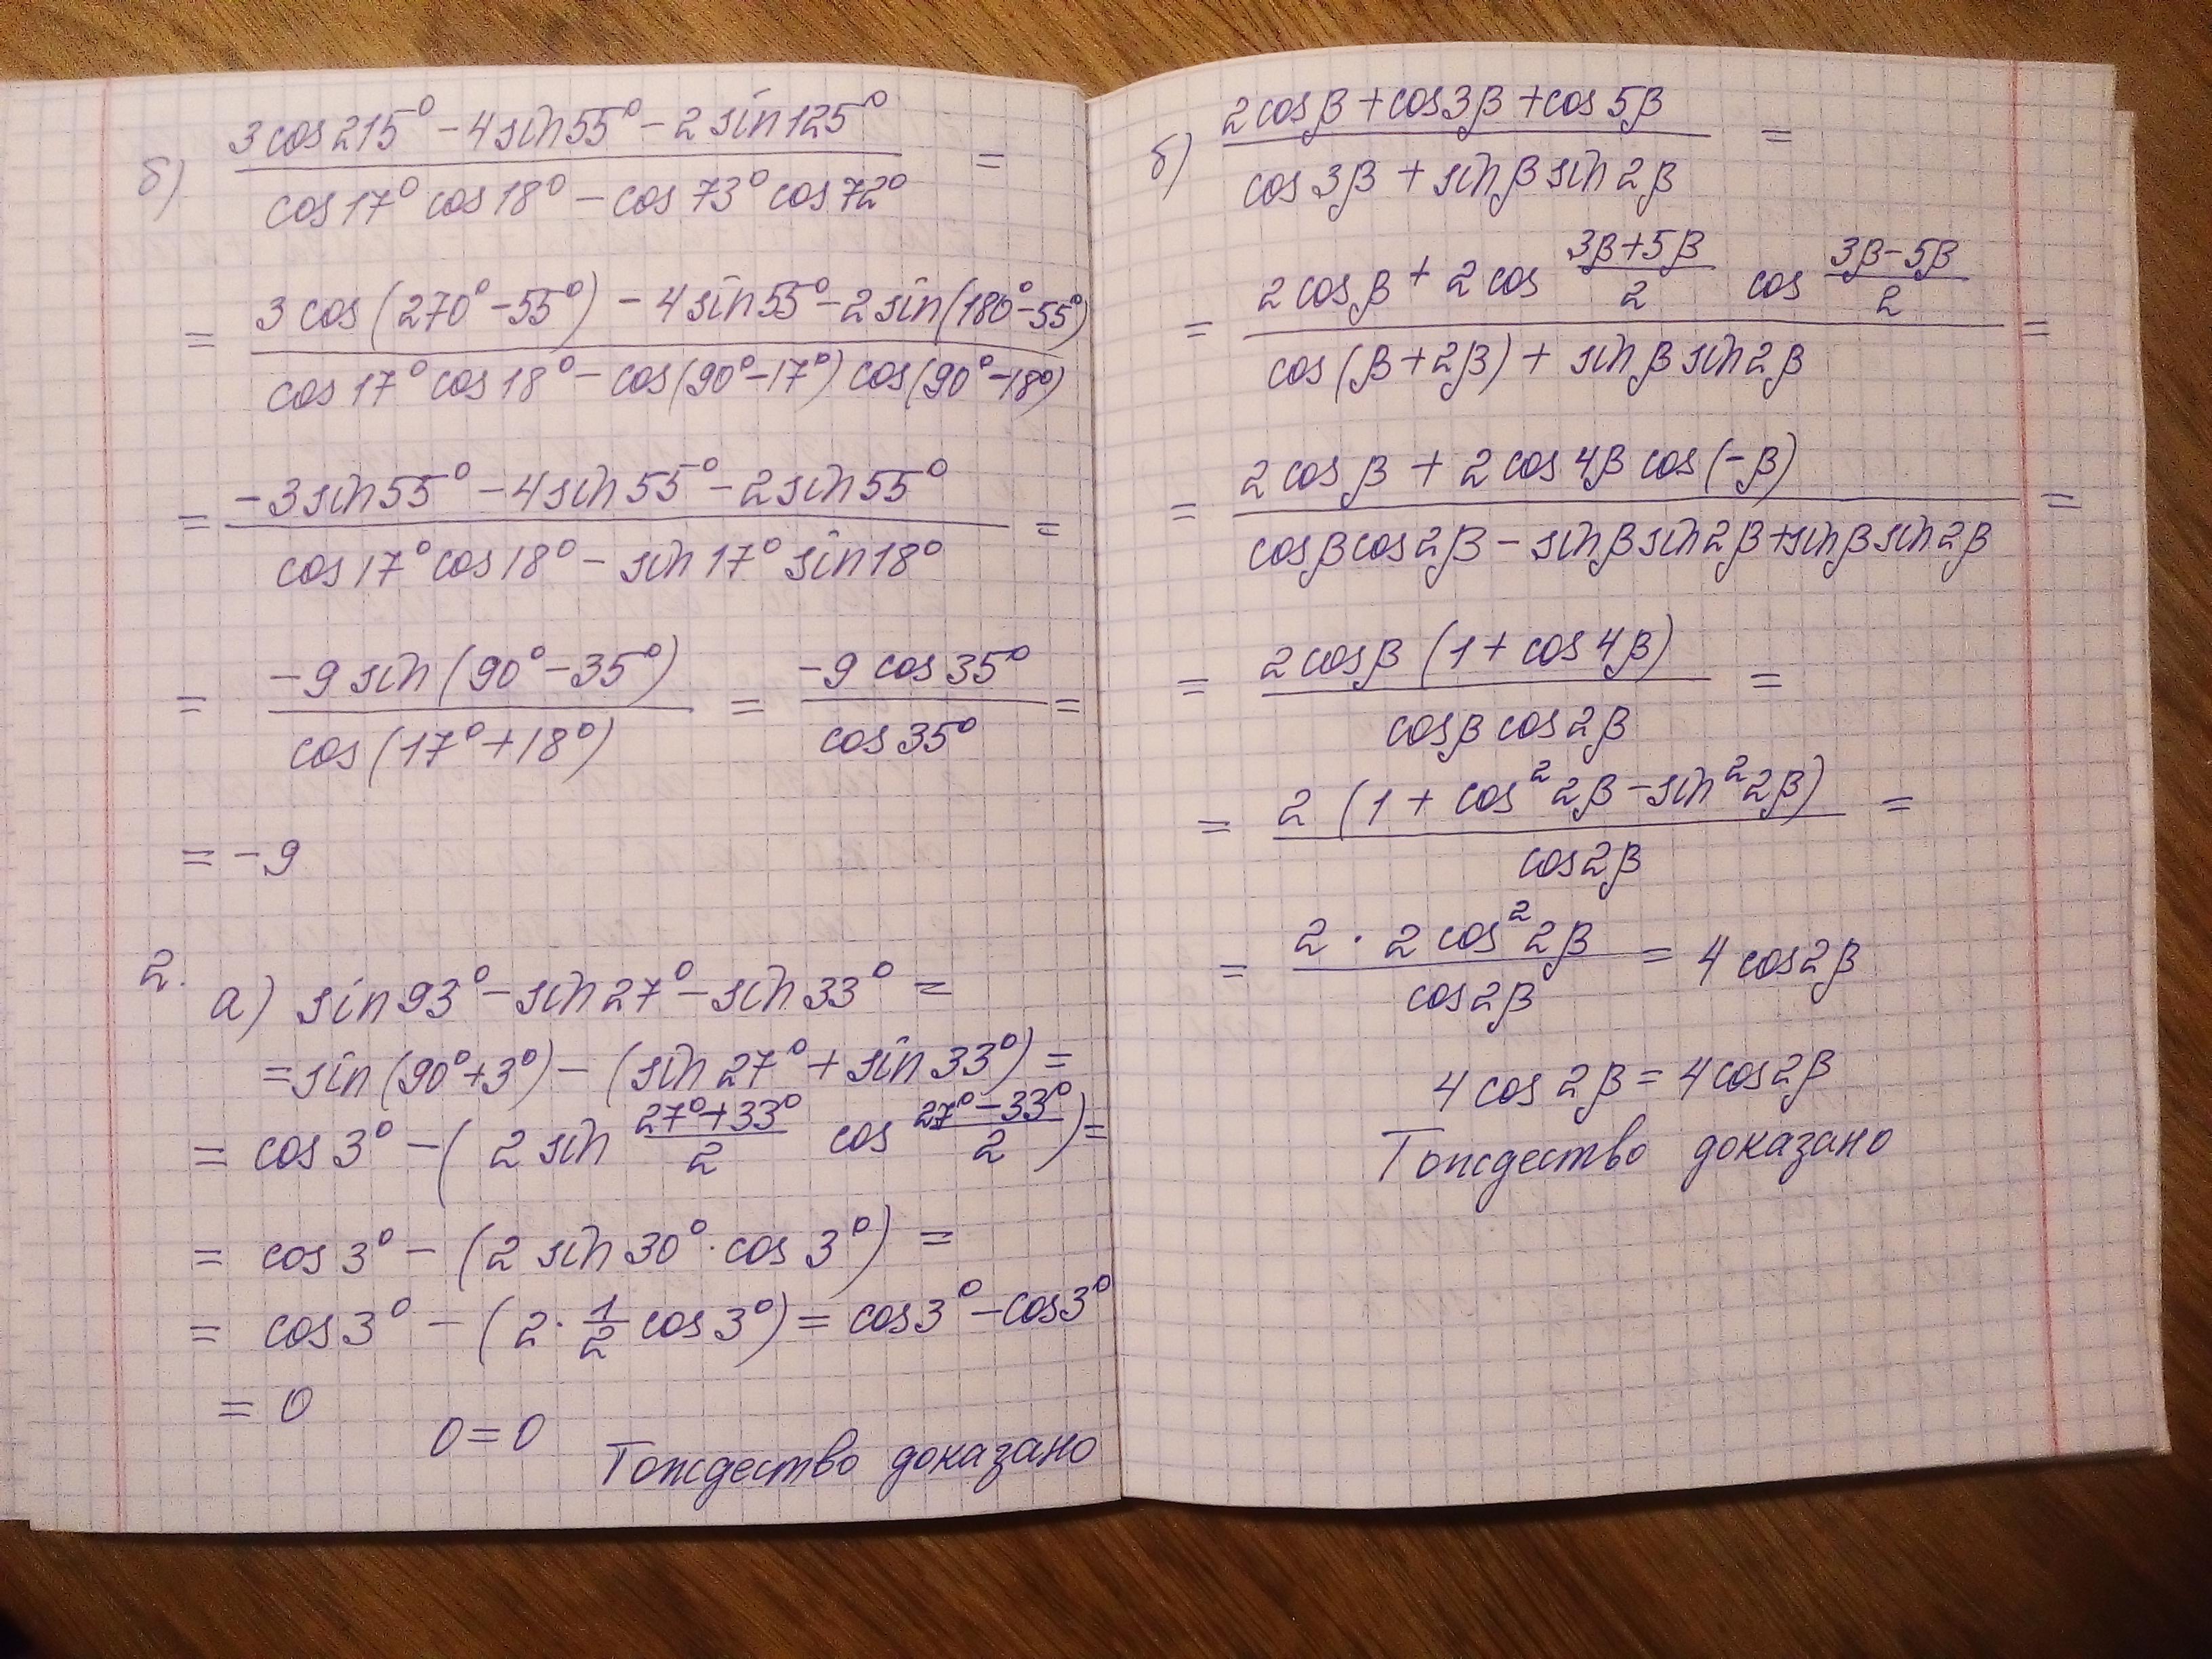 б) (3cos215° - 4sin55° - 2sin125°)/(cos17°cos18° - cos73°cos72°) =
= (3cos(270° - 55°) - 4sin55° - 2sin(180° - 55°))/(cos17°cos18° - cos(90° - 17°)cos(90° - 18°))
= (-3sin55° - 4sin55° - 2sin55°)/(cos17°cos18° - sin17°sin18°) =
= (-9sin(90° - 35°))/(cos(17° + 18°)) = (-9cos35°)/(cos35°) =
= -9
2. а) sin93° - sin27° - sin33° =
= sin(90° + 3°) - (sin27° + sin33°) =
= cos3° - (2sin (27° + 33°)/2 cos (27° - 33°)/2) =
= cos3° - (2sin30° · cos3°) =
= cos3° - (2 · 1/2 cos3°) = cos3° - cos3°
= 0
0 = 0 Тождество доказано
б) (2cosβ + cos3β + cos5β)/(cos3β + sinβ sin2β) =
= (2cosβ + 2cos (3β + 5β)/2 cos (3β - 5β)/2)/(cos(β + 2β) + sinβ sin2β) =
= (2cosβ + 2cos4β cos(-β))/(cosβcos2β - sinβsin2β + sinβsin2β) =
= (2cosβ(1 + cos4β))/(cosβ cos2β) =
= (2(1 + cos²2β - sin²2β))/(cos2β) =
= (2 · 2cos²2β)/(cos2β) = 4cos2β
4cos2β = 4cos2β
Тождество доказано